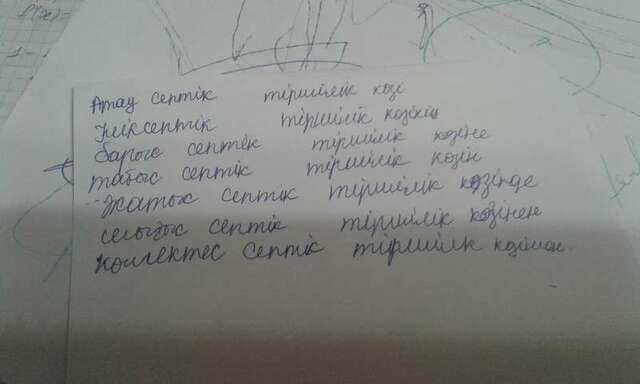 f(x)=
1-
Атау септік тіршілік көзі
Ілік септік тіршілік көзінің
барыс септік тіршілік көзіне
табыс септік тіршілік көзін
Жатыс септік тіршілік көзінде
шығыс септік тіршілік көзінен
Көмектес септік тіршілік көзімен